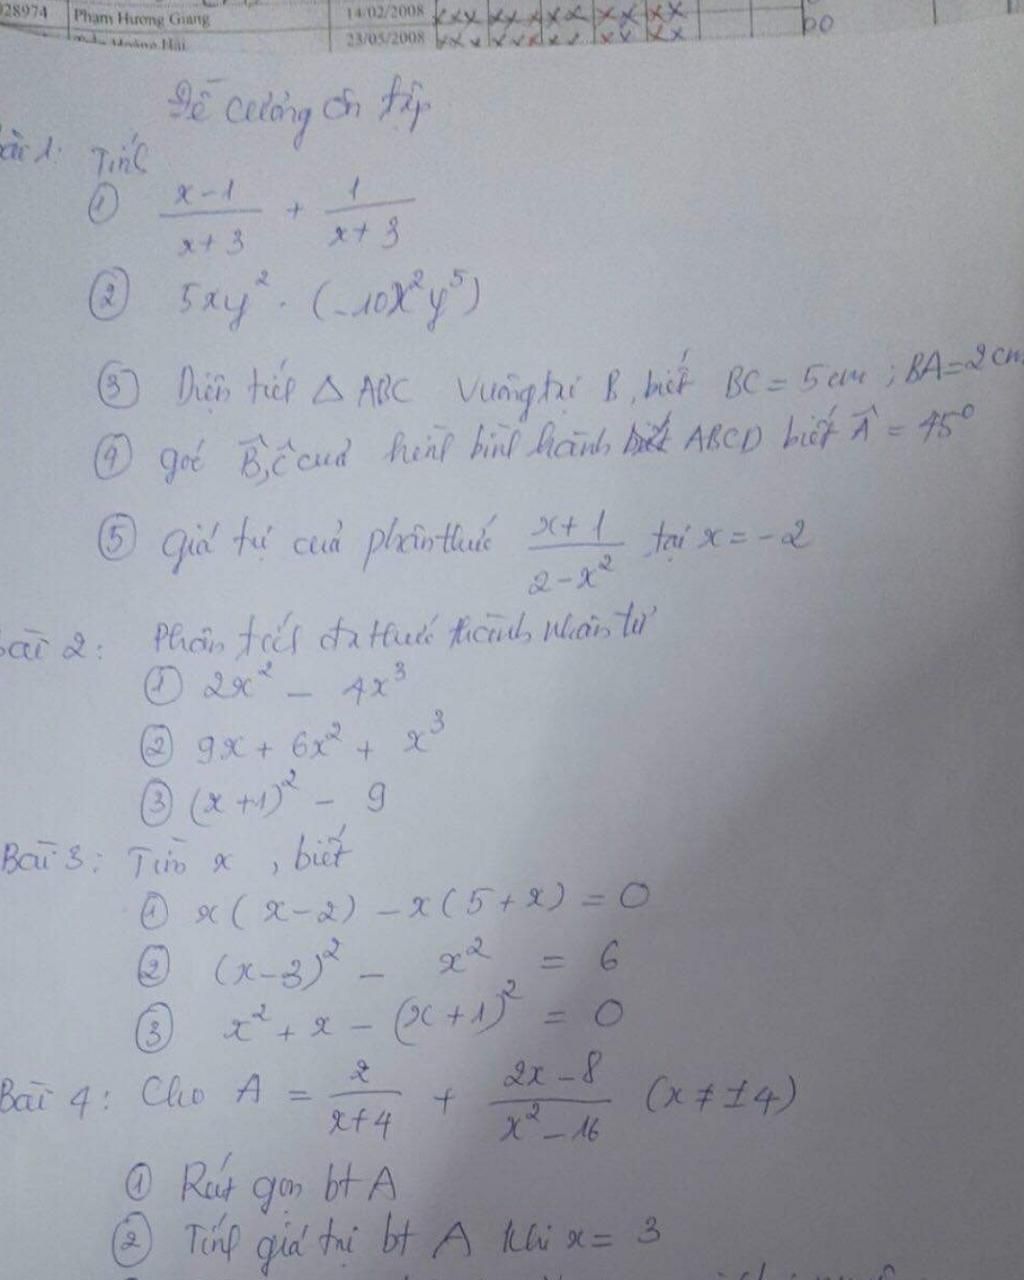 28974 Phạm Hương Giang 14/02/2008
Hoàng Hải 23/05/2008
Đề cương ôn tập
Bài 1: Tính
① x-1/x+3 + 1/x+3
② 5xy² . (-10x²y⁵)
③ Diện tích △ ABC vuông tại B, biết BC = 5cm ; BA = 2cm
④ góc B̂, Ĉ của hình bình hành ABCD biết Â = 45°
⑤ Giá trị của phân thức x+1/2-x² tại x = -2
Bài 2: Phân tích đa thức thành nhân tử
① 2x² - 4x³
② 9x + 6x² + x³
③ (x+1)² - 9
Bài 3: Tìm x, biết
① x(x-2) - x(5+x) = 0
② (x-3)² - x² = 6
③ x² + x - (x+1)² = 0
Bài 4: Cho A = 2/x+4 + 2x-8/x²-16 (x ≠ ±4)
① Rút gọn bt A
② Tính giá trị bt A khi x = 3